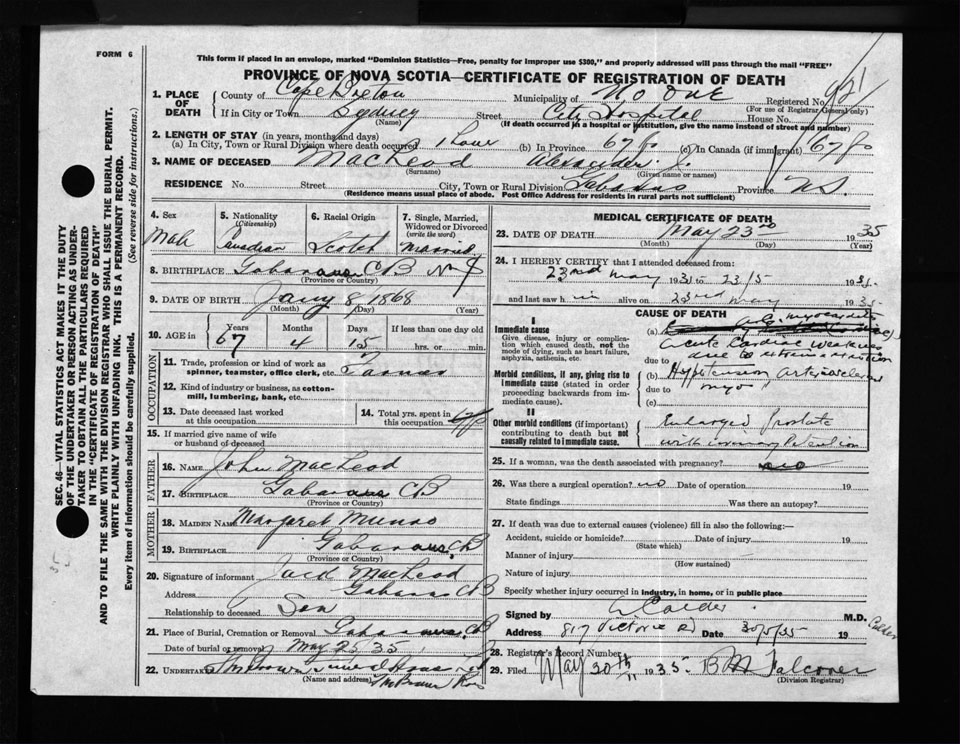 FORM 6
This form if placed in an envelope, marked "Dominion Statistics—Free, penalty for improper use $300," and properly addressed will pass through the mail "FREE"
PROVINCE OF NOVA SCOTIA—CERTIFICATE OF REGISTRATION OF DEATH
SEC. 46—VITAL STATISTICS ACT MAKES IT THE DUTY
OF THE UNDERTAKER OR PERSON ACTING AS UNDER-
TAKER TO OBTAIN ALL THE PARTICULARS REQUIRED
IN THE "CERTIFICATE OF REGISTRATION OF DEATH"
AND TO FILE THE SAME WITH THE DIVISION REGISTRAR WHO SHALL ISSUE THE BURIAL PERMIT.
WRITE PLAINLY WITH UNFADING INK. THIS IS A PERMANENT RECORD.
Every item of information should be carefully supplied. (See reverse side for instructions.)
1. PLACE OF DEATH County of Cape Breton Municipality of No One Registered No. 921
(For use of Registrar General only)
If in City or Town Sydney Street City Hospital House No.
(Name) (If death occurred in a hospital or institution, give the name instead of street and number)
2. LENGTH OF STAY (in years, months and days)
(a) In City, Town or Rural Division where death occurred 1 hour (b) In Province 67 yo (c) In Canada (if immigrant) 67 yo
3. NAME OF DECEASED MacLeod Alexander J.
(Surname) (Given name or names)
RESIDENCE No. Street City, Town or Rural Division Gabarus Province N.S.
(Residence means usual place of abode. Post Office Address for residents in rural parts not sufficient)
4. Sex
Male
5. Nationality (Citizenship)
Canadian
6. Racial Origin
Scotch
7. Single, Married, Widowed or Divorced (write the word)
Married
8. BIRTHPLACE Gabarus CB NS
(Province or Country)
9. DATE OF BIRTH Jany 8, 1868
(Month) (Day) (Year)
10. AGE in Years 67 Months 4 Days 15 If less than one day old hrs. or min.
OCCUPATION
11. Trade, profession or kind of work as spinner, teamster, office clerk, etc. Farmer
12. Kind of industry or business, as cotton-mill, lumbering, bank, etc.
13. Date deceased last worked at this occupation
14. Total yrs. spent in this occupation
15. If married give name of wife or husband of deceased
FATHER
16. NAME John MacLeod
17. BIRTHPLACE Gabarus CB
(Province or Country)
MOTHER
18. MAIDEN NAME Margaret Munro
19. BIRTHPLACE Gabarus, CB
(Province or Country)
20. Signature of informant Jack MacLeod
Address Gabarus CB
Relationship to deceased Son
21. Place of Burial, Cremation or Removal Gabarus, CB
Date of burial or removal May 25 35
22. UNDERTAKER
(Name and address)
MEDICAL CERTIFICATE OF DEATH
23. DATE OF DEATH May 23rd 1935
(Month) (Day) (Year)
24. I HEREBY CERTIFY that I attended deceased from:
23rd May 1935 to 23/5 1935
and last saw him alive on 23rd May 1935
CAUSE OF DEATH
I
Immediate cause
Give disease, injury or complication which caused death, not the mode of dying, such as heart failure, asphyxia, asthenia, etc.
(a) Acute Cardiac Weakness
due to
Morbid conditions, if any, giving rise to immediate cause (stated in order proceeding backwards from immediate cause).
(b) Hypertension
due to myo "
(c)
II
Other morbid conditions (if important) contributing to death but not causally related to immediate cause.
Enlarged Prostate
with urinary Retention
25. If a woman, was the death associated with pregnancy? no
26. Was there a surgical operation? no Date of operation 19
State findings Was there an autopsy?
27. If death was due to external causes (violence) fill in also the following:—
Accident, suicide or homicide? Date of injury 19
(State which)
Manner of injury
(How sustained)
Nature of injury
Specify whether injury occurred in industry, in home, or in public place
Signed by Calder M.D.
Calder
Address 817 Victoria Rd Date 30/5/35 19
28. Registrar's Record Number
29. Filed May 30th 1935 B M Falconer
(Division Registrar)